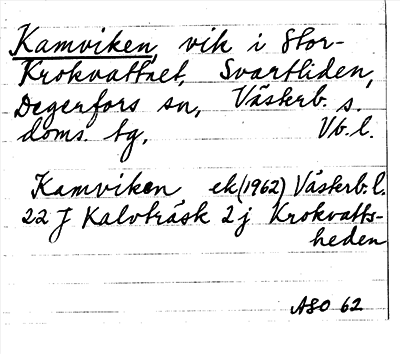 Kamviken, vik i Stor-
Krokvattnet, Svartliden,
Degerfors sn, Västerb. s.
doms. tg, Vb. l.
Kamviken ek (1962) Västerb. l.
22 J Kalvträsk 2 j Krokvatts-
heden
ASO 62